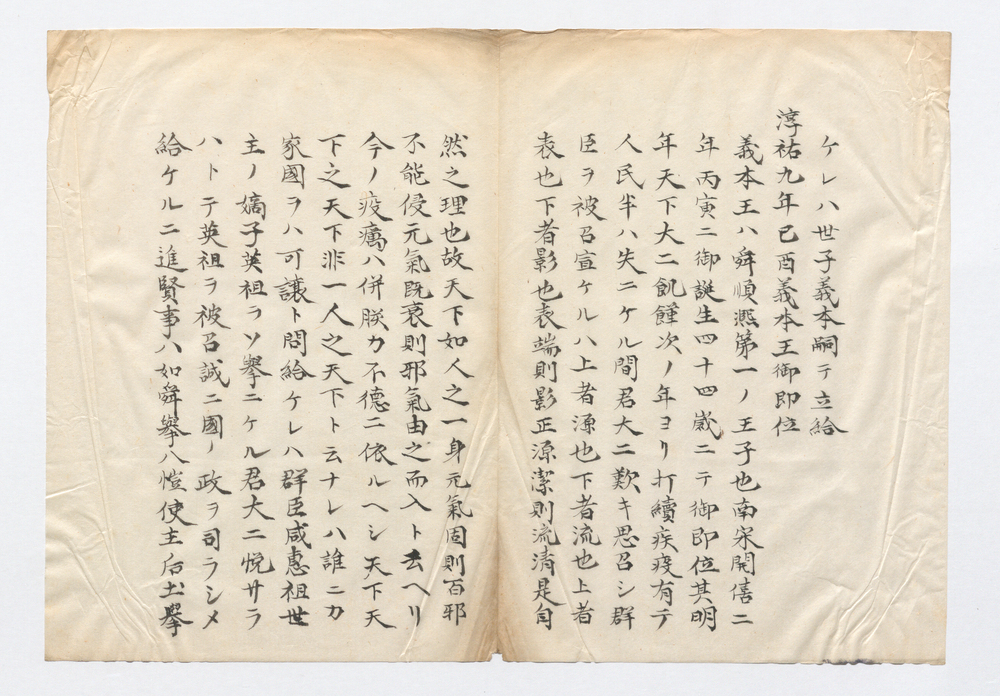 ケレハ世子義本嗣テ立給
淳祐九年己酉義本王御即位
義本王ハ舜順熈第一ノ王子也南宋開禧二
年丙寅ニ御誕生四十四歳ニテ御即位其明
年天下大ニ飢饉次ノ年ヨリ打續疾疫有テ
人民半ハ失ニケル間君大ニ歎キ思召シ群
臣ヲ被召宣ケルハ上者源也下者流也上者
表也下者影也表端則影正源潔則流清是自
然之理也故天下如人之一身元氣固則百邪
不能侵元氣既衰則邪氣由之而入ト云ヘリ
今ノ疫癘ハ併朕カ不德ニ依ルヘシ天下天
下之天下非一人之天下ト云ナレハ誰ニカ
家國ヲハ可讓ト問給ケレハ群臣咸惠祖世
主ノ嫡子英祖ヲソ擧ニケル君大ニ悦サラ
ハトテ英祖ヲ被召誠ニ國ノ政ヲ司ラシメ
給ケルニ進賢事ハ如舜擧八愷使主后土擧